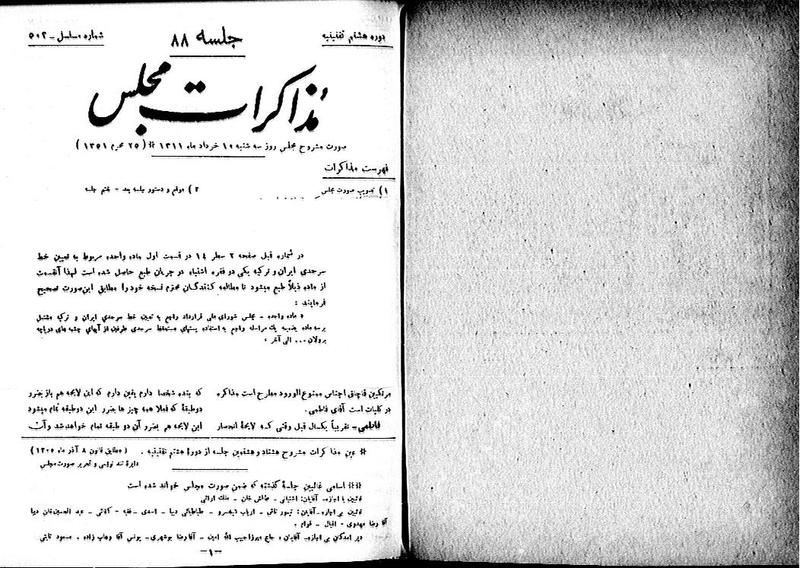 دوره هشتم تقنینیه
جلسه ۸۸
شماره مسلسل - ۵۰۲
مذاکرات مجلس
صورت مشروح مجلس روز سه شنبه ۱۰ خرداد ماه ۱۳۱۱ * (۲۵ محرم ۱۳۵۱)
فهرست مذاکرات
۱) تصویب صورت مجلس
۲) موقع و دستور جلسه بعد - ختم جلسه
در شماره قبل صفحه ۲ سطر ۱۴ در قسمت اول ماده واحده مربوط به تعیین خط
سرحدی ایران و ترکیه یکی دو فقره اشتباه در جریان طبع حاصل شده است لهذا آنقسمت
از ماده ذیلاً طبع میشود تا مطالعه کنندگان محترم نسخه خود را مطابق این صورت تصحیح
فرمایند :
« ماده واحده - مجلس شورای ملی قرارداد راجع به تعیین خط سرحدی ایران و ترکیه مشتمل
برسه ماده بضمیمه یك مراسله راجع به استفاده پستهای مستحفظ سرحدی طرفین از آبهای چشمه های دریاچه
برولان ... الی آخر .
مرتکبین قاچاق اجناس ممنوع الورود مطرح است مذاکره
در کلیات است آقای فاطمی.
فاطمی - تقریباً یکسال قبل وقتی که لایحهٔ انحصار
که بنده شخصا دارم یقین دارم که این لایحه هم باز بضرر
دوطبقهٔ که فعلا همه چیز ها بضرر این دوطبقه تمام میشود
این لایحه هم بضرر آن دو طبقه تمام خواهد شد و آن
* عین مذاکرات مشروح هشتاد و هشتمین جلسه از دورهٔ هشتم تقنینیه . (مطابق قانون ۸ آذر ماه ۱۳۰۵)
دایرهٔ تند نویسی و تحریر صورت مجلس
** اسامی غائبین جلسهٔ گذشته که ضمن صورت مجلس خوانده شده است
غائبین با اجازه. آقایان: آشتیانی - خان - ملك
غائبین بی اجازه - آقایان: تیمور تاش - ارباب کیخسرو - طباطبائی دیبا - اسدی - فقیه - - عبد الحسین خان دیبا
آقا رضا مهدوی - اقبال - قوام .
دیر آمدگان بی اجازه. آقایان : حاج میرزا حبیب الله امین - آقا رضا بوشهری - یونس آقا وهاب زاده . مسعود ثابتی
-۱-